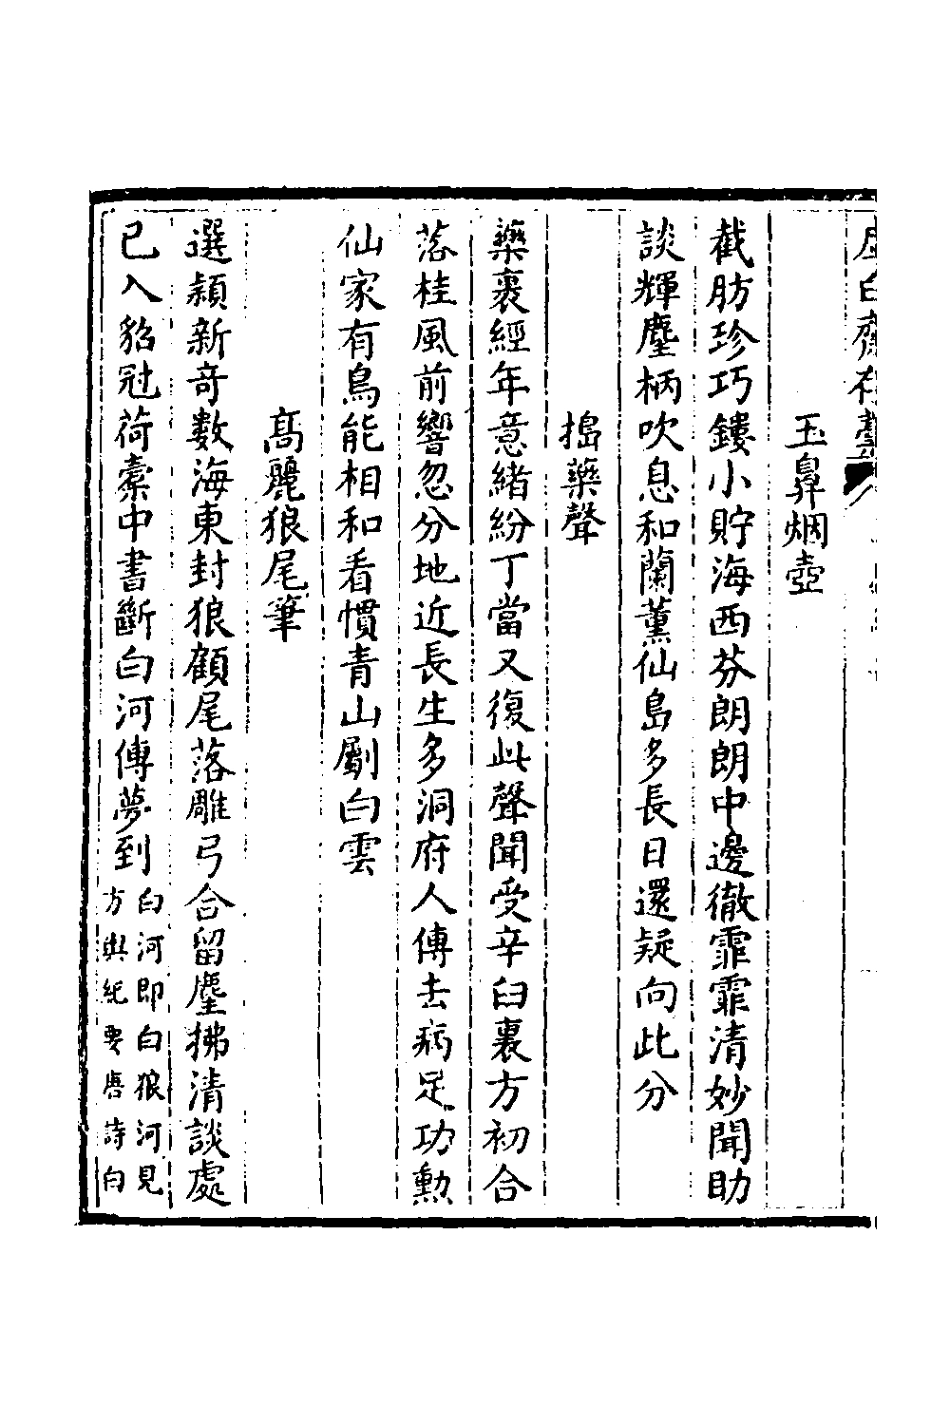 虛白齋存藳
玉鼻烟壺
截肪珍巧鏤小貯海西芬朗朗中邊徹霏霏清妙聞助
談輝麈柄吹息和蘭薰仙島多長日還疑向此分
搗藥聲
藥裹經年意緒紛丁當又復此聲聞受辛臼裏方初合
落桂風前響忽分地近長生多洞府人傳去病足功勲
仙家有鳥能相和看慣青山劚白雲
高麗狼尾筆
選穎新竒數海東封狼顧尾落雕弓合留麈拂清談處
已入貂冠荷橐中書斷白河傳夢到
白河即白狼河見
方輿紀要唐詩白